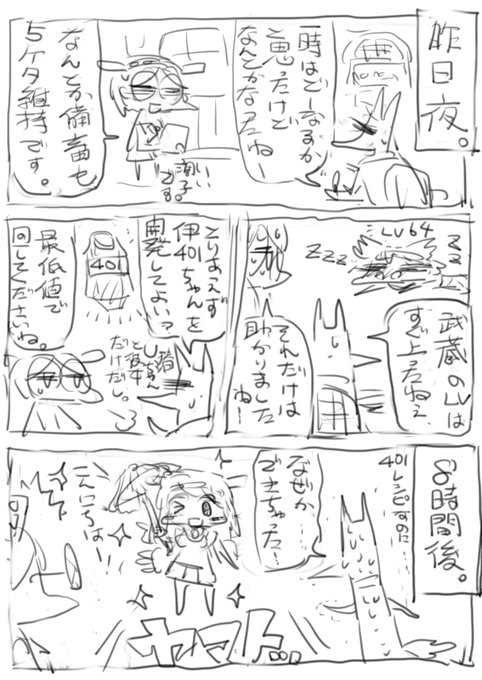 昨日夜。
一時はどーなるか
思ったけど
なんとかなったねー
なんとか備蓄も
5ケタ維持です。
LV64
ZZZ
ZZ
武蔵のLVは
すぐ上るねえ
それだけは
助かりました
ねー
とりあえず
伊401ちゃんを
開発してよい?
401
最低値で
回してくださいね。
8時間後。
401レシピなのに…
なぜか
できちゃった…
こんにちはー
ヤマトー